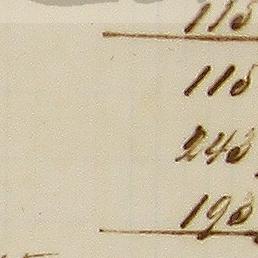 115
115
243
193